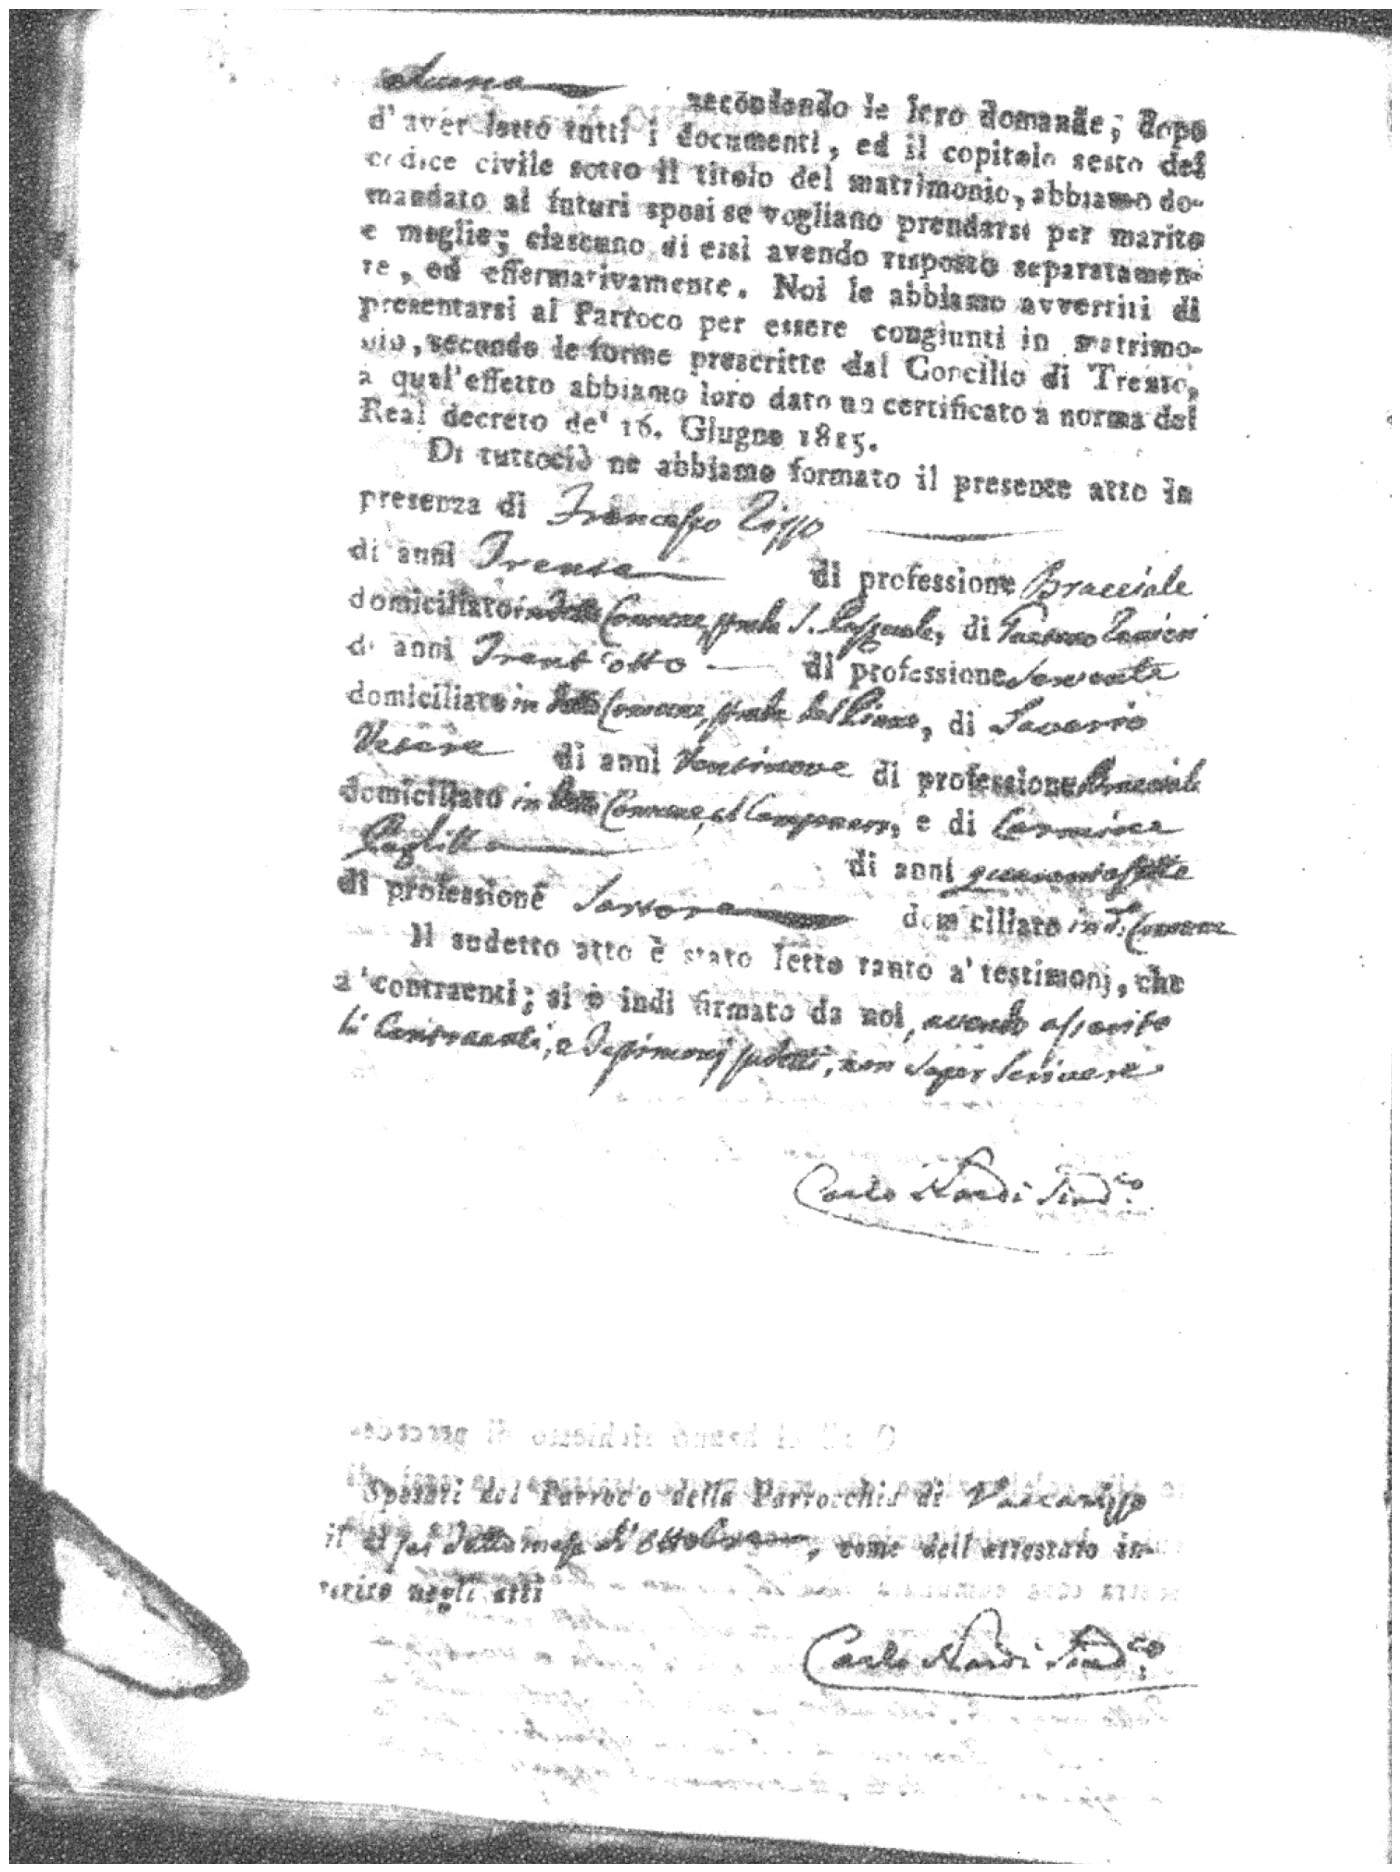 secondando le loro domande; dopo
d'aver letto tutti i documenti, ed il capitolo sesto del
codice civile sotto il titolo del matrimonio, abbiamo do-
mandato ai futuri sposi se vogliano prendersi per marito
e moglie; ciascuno di essi avendo risposto separatamen-
te, ed effermativamente. Noi le abbiamo avvertiti di
presentarsi al Parroco per essere congiunti in matrimo-
nio, secondo le forme prescritte dal Concilio di Trento,
a qual'effetto abbiamo loro dato un certificato a norma del
Real decreto de' 16. Giugno 1815.
Di tuttociò ne abbiamo formato il presente atto in
presenza di Francesco Rizzo
di anni Trenta di professione Bracciale
domiciliato in detto Comune, strada S. Pasquale, di
di anni Trent'otto di professione Servente
domiciliato in detto Comune, strada del Piano, di Saverio
di anni Ventinove di professione Bracciale
domiciliato in detto Comune, e di Carmine
di anni quarantasette
di professione Sartore domiciliato in d. Comune
Il sudetto atto è stato letto tanto a' testimonj, che
a' contraenti; si è indi firmato da noi, avendo asserito
li Contraenti, e Testimonj sudetti, non saper scrivere
Carlo Nardi Sind.co
Sposati dal Parroco della Parrocchia di Vaccarizzo
il dì sei detto mese d'Ottobre, come dell'attestato in-
serito negli atti
Carlo Nardi Sind.co